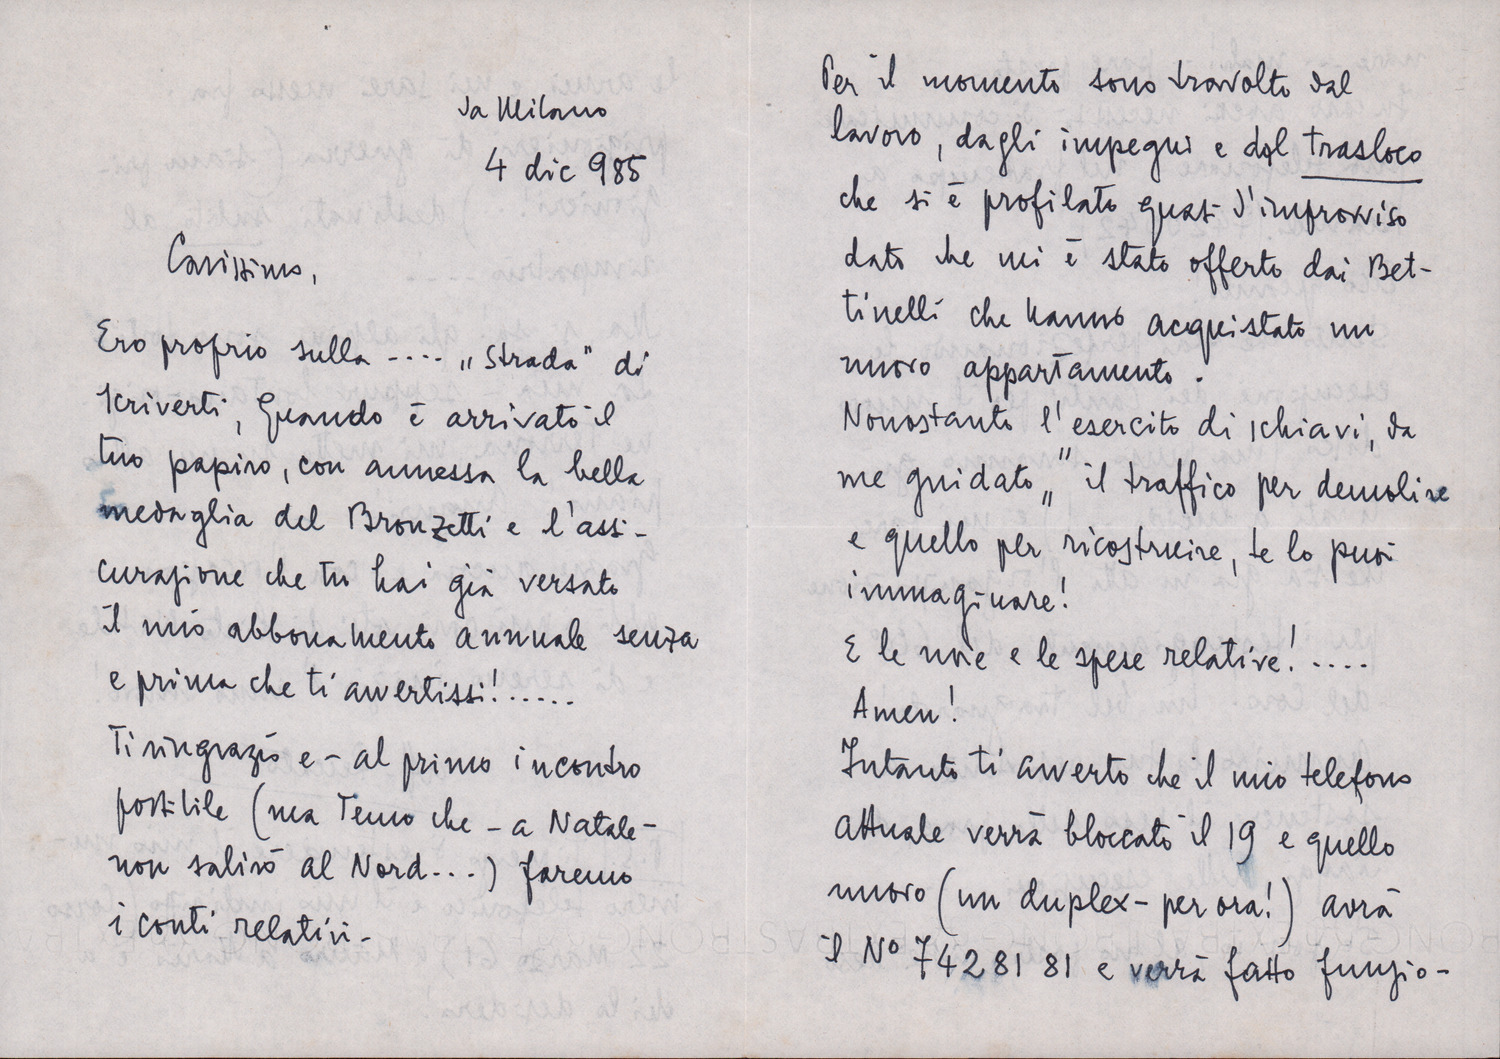 da Milano
4 dic 985
Carissimo,
Ero proprio sulla .... „Strada" di
scriverti, quando è arrivato il
tuo papiro, con annessa la bella
medaglia del Bronzetti e l'assi-
curazione che tu hai già versato
il mio abbonamento annuale senza
e prima che ti avvertissi!.....
Ti ringrazio e - al primo incontro
possibile (ma temo che - a Natale -
non salirò al Nord...) faremo
i conti relativi -
Per il momento sono travolto dal
lavoro, dagli impegni e dal trasloco
che si è profilato quasi d'improvviso
dato che mi è stato offerto dai Bet-
tinelli che hanno acquistato un
nuovo appartamento.
Nonostante l'esercito di schiavi, da
me guidato „" il traffico per demolire
e quello per ricostruire, te lo puoi
immaginare!
E le noie e le spese relative! ....
Amen!
Intanto ti avverto che il mio telefono
attuale verrà bloccato il 19 e quello
nuovo (un duplex - per ora!) avrà
il N° 7428181 e verrà fatto funzio-